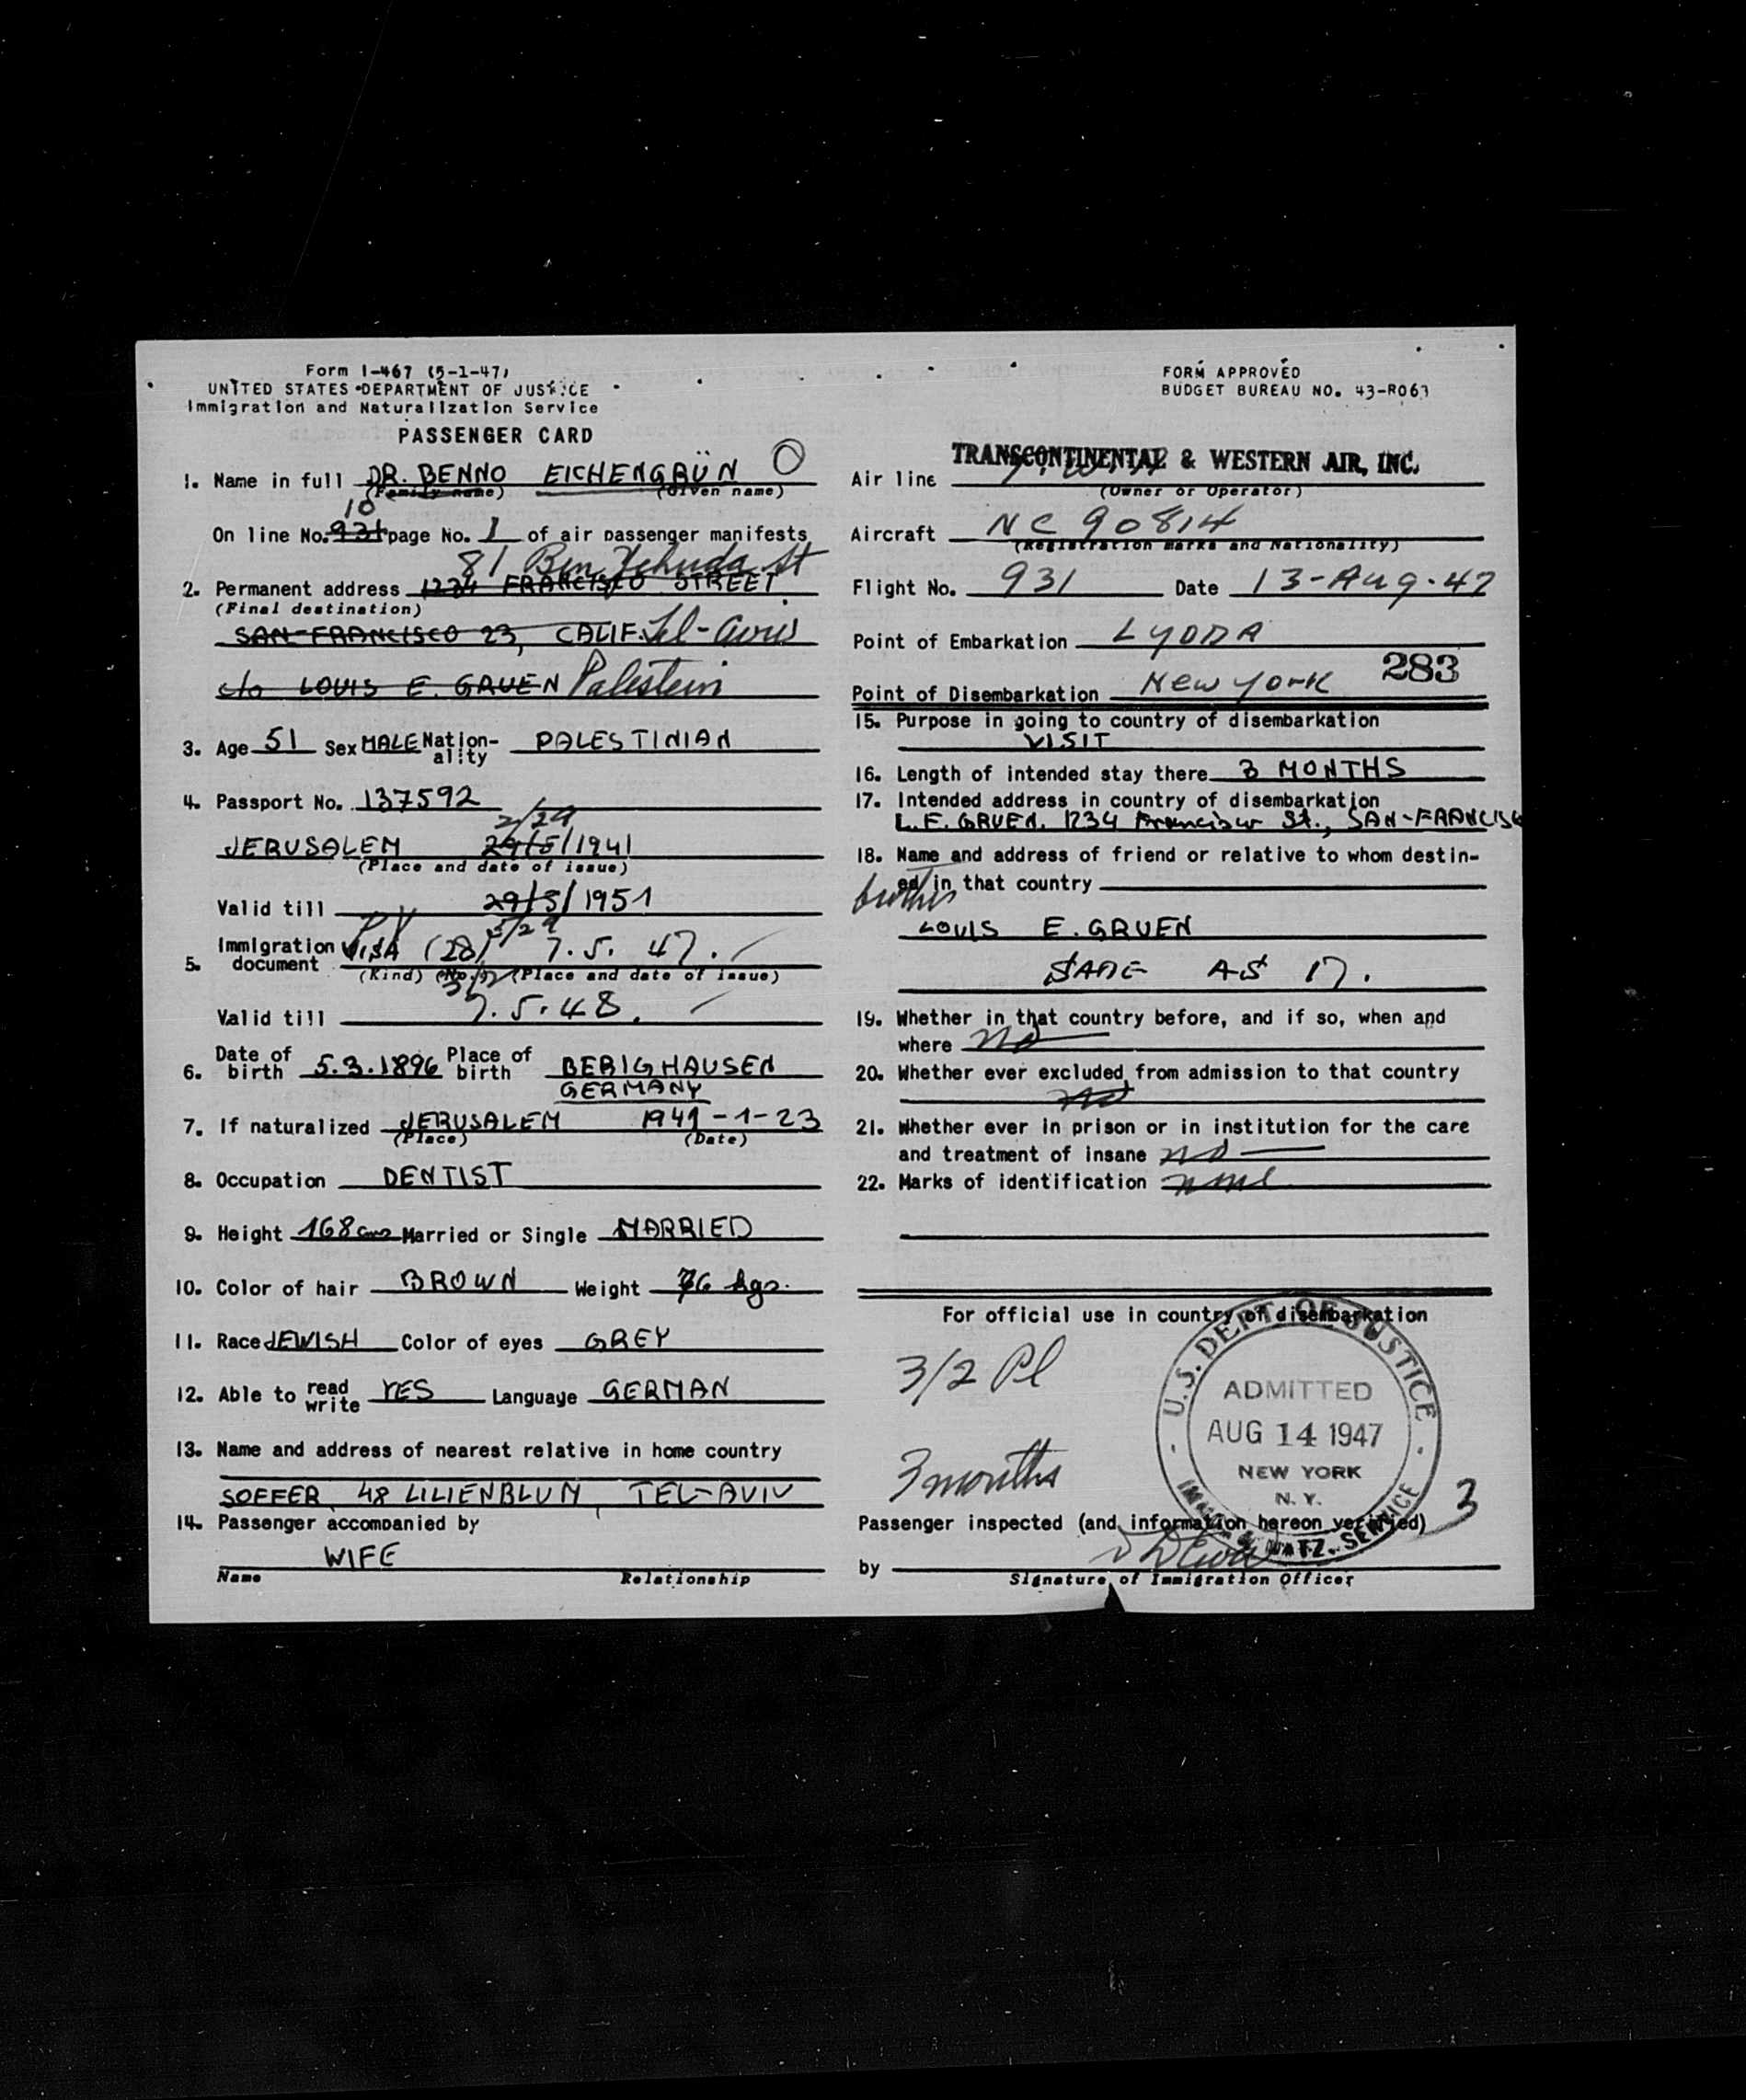 Form I-467 (5-1-47)
UNITED STATES DEPARTMENT OF JUSTICE
Immigration and Naturalization Service
PASSENGER CARD
1. Name in full DR. BENNO EICHENGRÜN O
(Family name) (Given name)
10
On line No. 931 page No. 1 of air passenger manifests
81 Ben Yehuda St
2. Permanent address 1234 FRANCISCO STREET
(Final destination)
SAN-FRANCISCO 23, CALIF. Tel-Aviv
c/o LOUIS E. GRUEN Palestein
3. Age 51 Sex MALE Nation-ality PALESTINIAN
4. Passport No. 137592
JERUSALEM 29/5/1941
(Place and date of issue)
Valid till 29/5/1951
5/29
5. Immigration document VISA (28) 7.5.47.
(Kind) (No.) (Place and date of issue)
Valid till 7.5.48.
6. Date of birth 5.3.1896 Place of birth BERIGHAUSEN
GERMANY
7. If naturalized JERUSALEM 1941-1-23
(Place) (Date)
8. Occupation DENTIST
9. Height 168 cms Married or Single MARRIED
10. Color of hair BROWN Weight 76 kgs.
11. Race JEWISH Color of eyes GREY
12. Able to read write YES Language GERMAN
13. Name and address of nearest relative in home country
SOFFER, 48 LILIENBLUM, TEL-AVIV
14. Passenger accompanied by
WIFE
Name Relationship
FORM APPROVED
BUDGET BUREAU NO. 43-R063
TRANSCONTINENTAL & WESTERN AIR, INC.
Air line T.W.A
(Owner or Operator)
Aircraft NC 90814
(Registration marks and Nationality)
Flight No. 931 Date 13-Aug-47
Point of Embarkation LYDDA
283
Point of Disembarkation New York
15. Purpose in going to country of disembarkation
VISIT
16. Length of intended stay there 3 MONTHS
17. Intended address in country of disembarkation
L.E. GRUEN, 1234 Francisco St., SAN-FRANCISCO
18. Name and address of friend or relative to whom destin-
ed in that country
brother
LOUIS E. GRUEN
SAME AS 17.
19. Whether in that country before, and if so, when and
where no
20. Whether ever excluded from admission to that country
no
21. Whether ever in prison or in institution for the care
and treatment of insane no
22. Marks of identification none
For official use in country of disembarkation
3/2 Pl
3 months
U.S. DEPT. OF JUSTICE
ADMITTED
AUG 14 1947
NEW YORK
N. Y.
IMMIG. & NATZ. SERVICE
3
Passenger inspected (and information hereon verified)
by
Signature of Immigration Officer